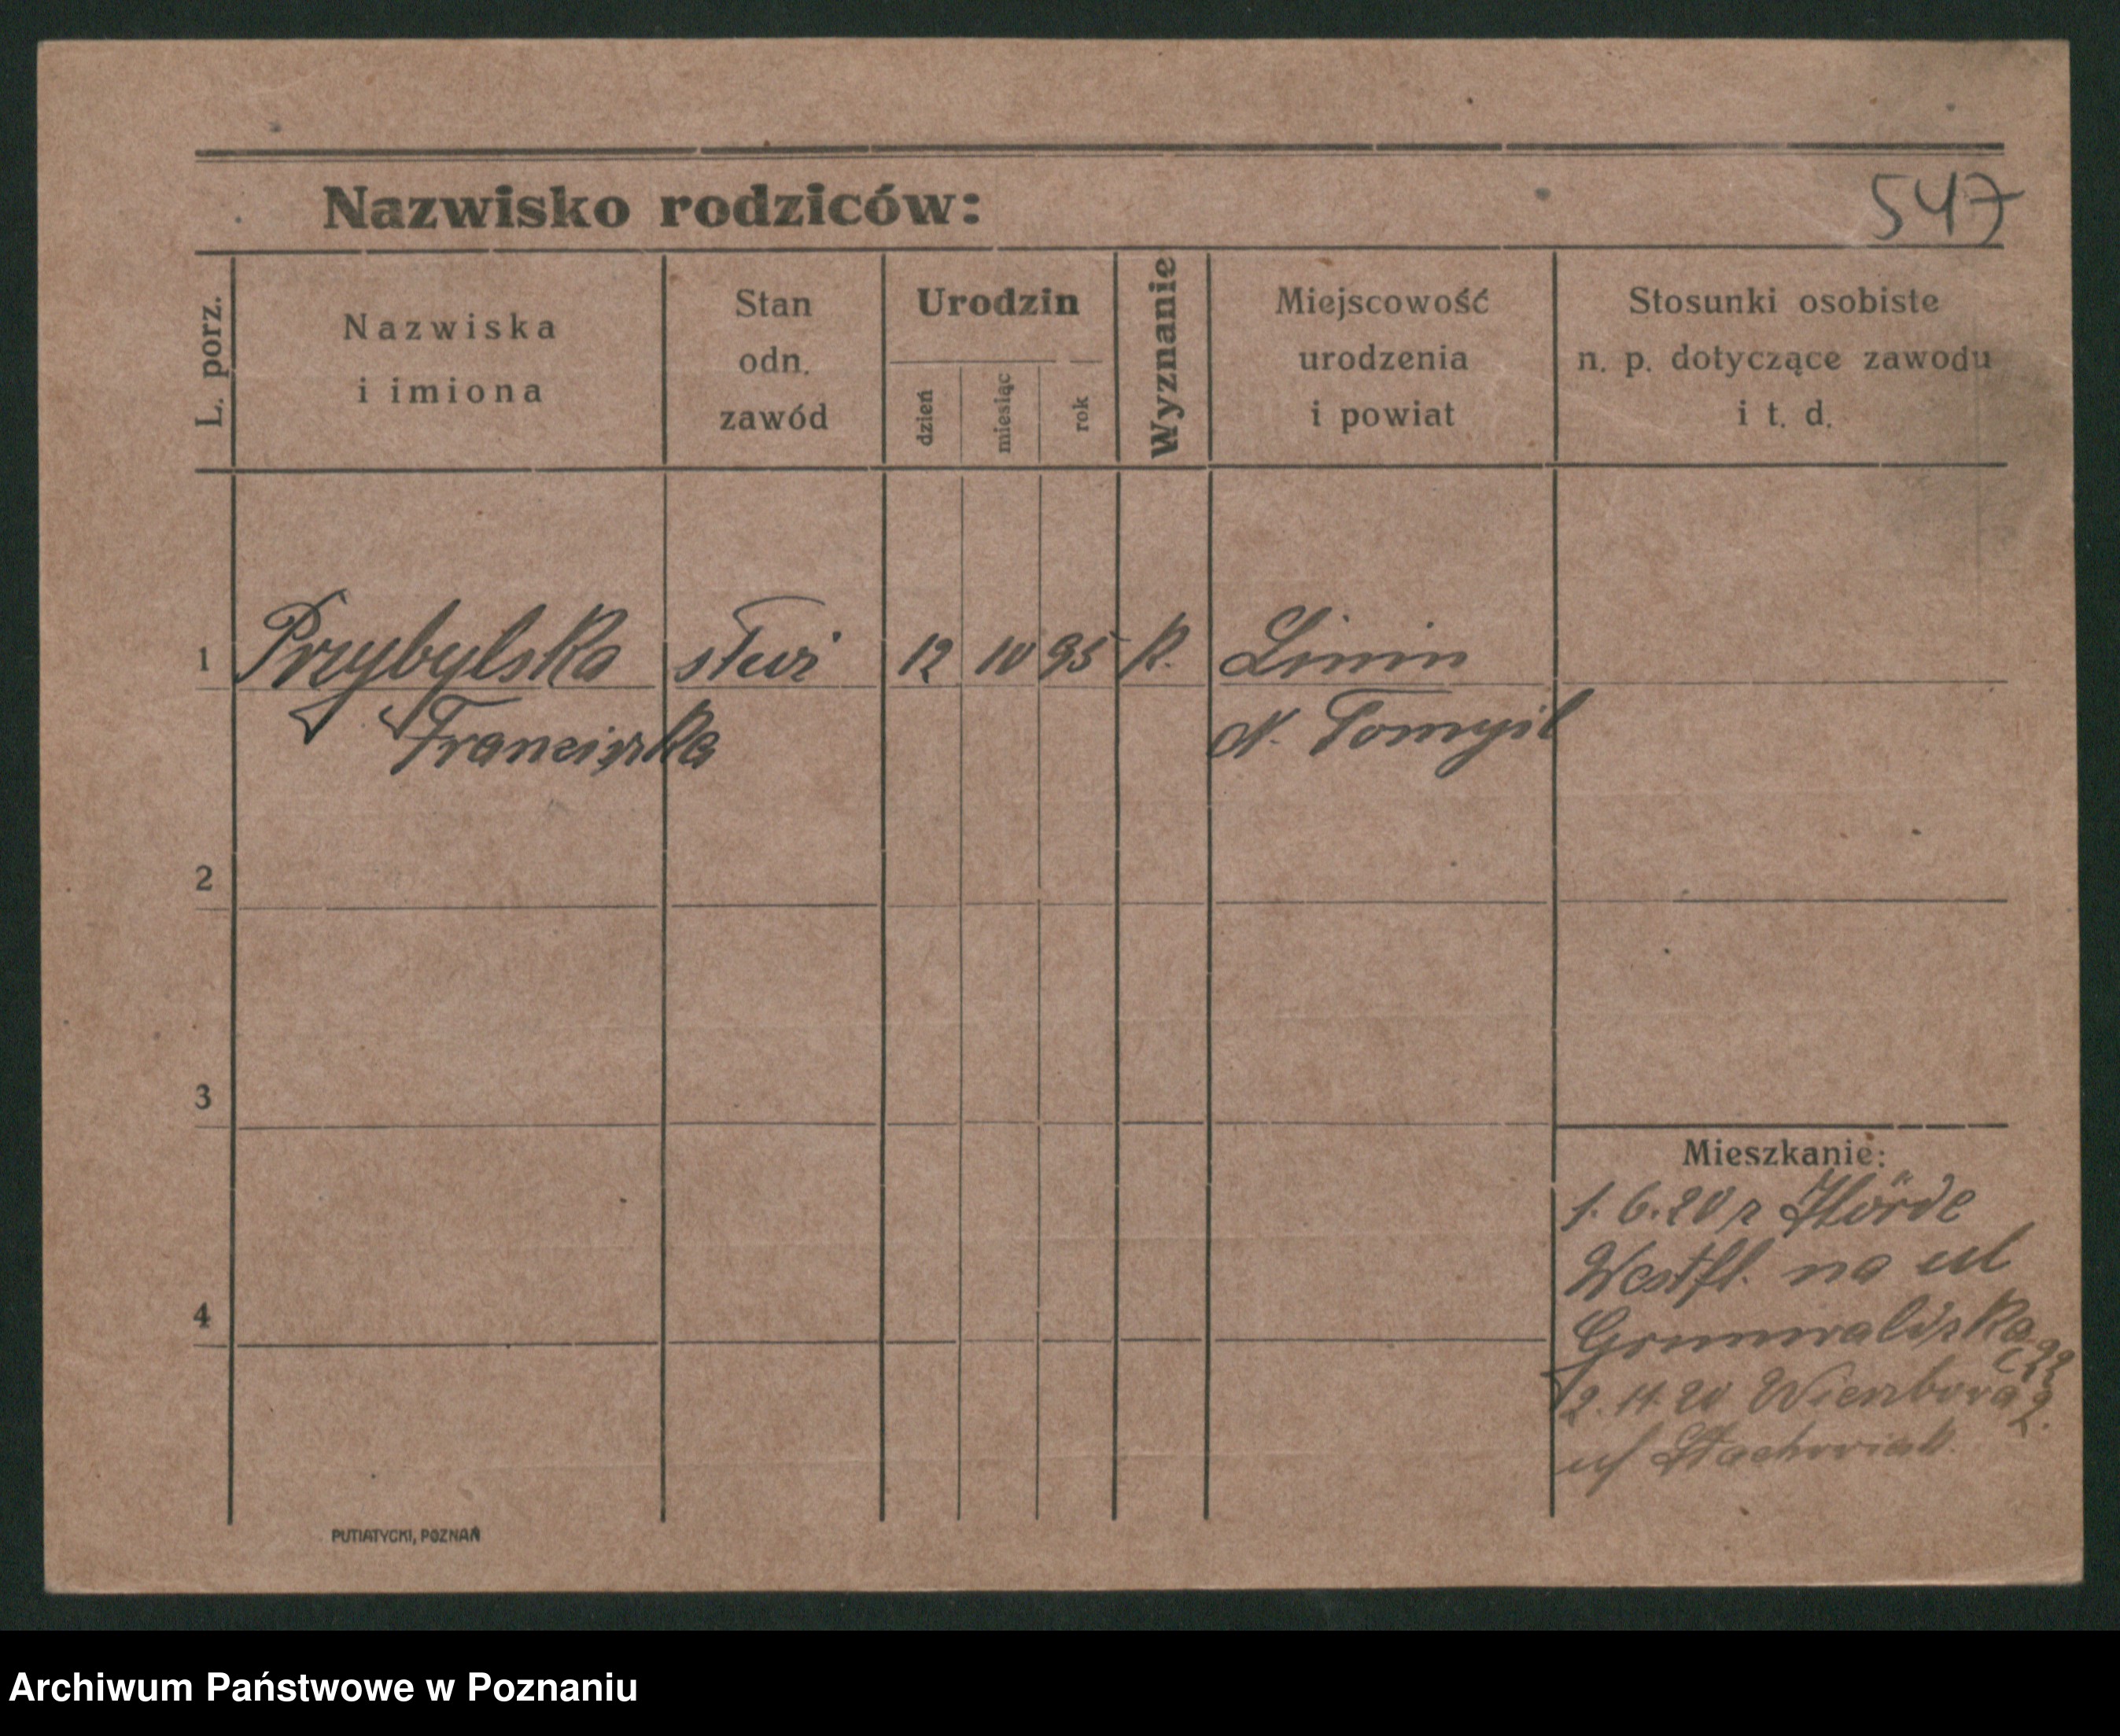 Nazwisko rodziców:
547
L. porz.
Nazwiska
i imiona
Stan
odn.
zawód
Urodzin
dzień
miesiąc
rok
Wyznanie
Miejscowość
urodzenia
i powiat
Stosunki osobiste
n. p. dotyczące zawodu
i t. d.
1 Przybylska 12 10 95 K. Linin
Franciszka N. Tomyśl
2
3
4
Mieszkanie:
1. 6. 20 z Hörde
Westfl. na ul
Grunwaldzka
22
2. 11. 20
PUTIATYCKI, POZNAŃ
Archiwum Państwowe w Poznaniu